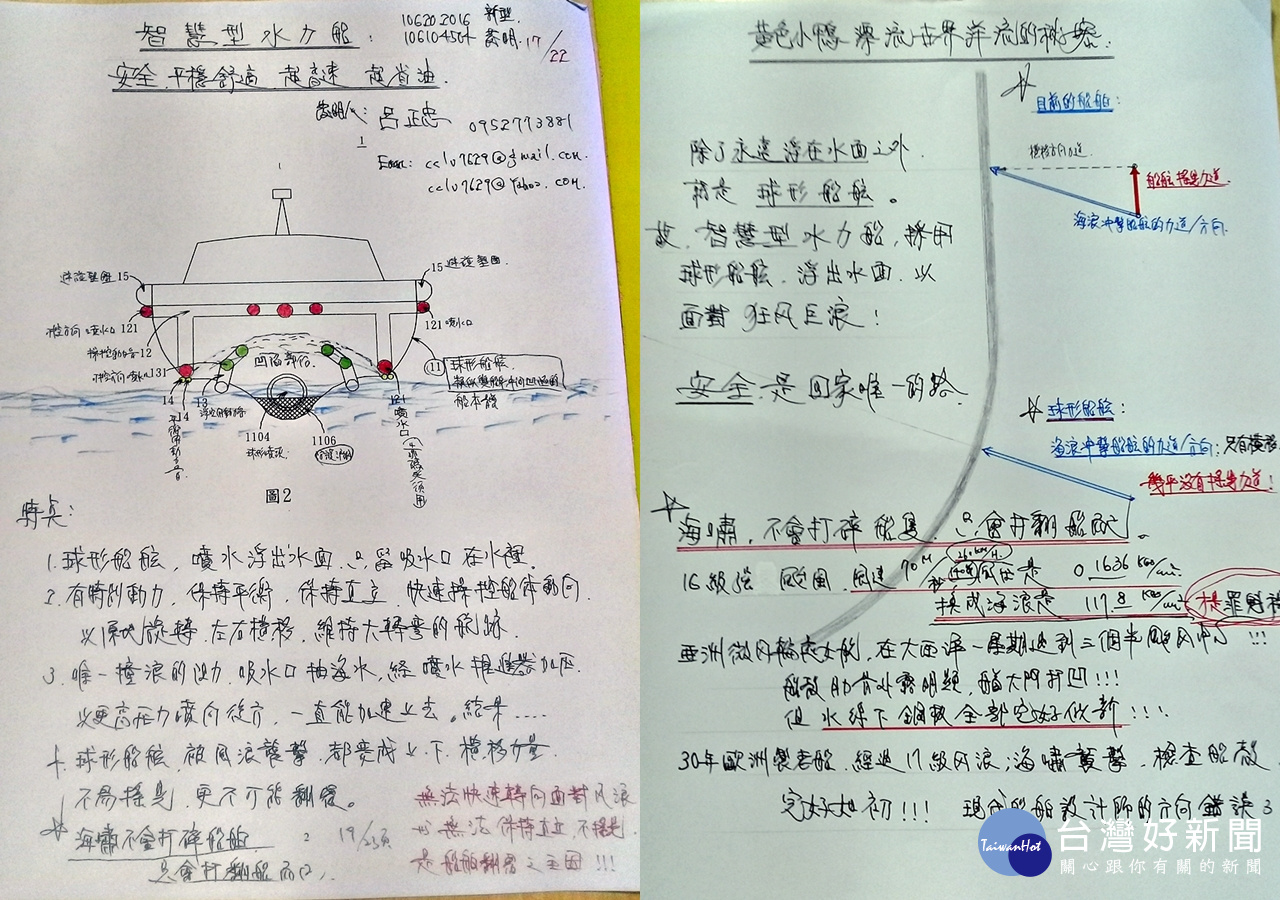 智慧型水力船:
10620.2016 新型.
106104504 發明. 17/22
安全.平穩舒適.超高速 超省油.
發明人: 呂正忠 0952773881
Email: cclu7629@gmail.com.
cclu7629@Yahoo.com.
15
15
121
121噴水口
12
131
凹陷部位.
11
球形船舷.
船本體
14
14
13
1104
1106
噴水口
圖2
特點:
1.球形船舷,噴水浮出水面.只留吸水口在水裡.
2.有時刻動力.保持平衡.保持直立.快速操控船体動向.
以原地旋轉.左右橫移.維持大轉彎的航跡.
3.唯一撞浪的阻力.吸水口抽海水,經噴水推進器加压.
以更高压力噴向後方,一直能加速上去。結果....
4.球形船舷.被風浪襲擊.都變成上.下.橫移力量.
不易搖晃.更不可能翻覆。
海嘯不會打碎船舶.
只會打翻船而已.
無法快速轉向面對風浪
也無法保持直立.不搖晃.
是船舶翻覆之主因!!!
黃色小鴨漂流世界洋流的秘密:
目前的船舶:
除了永遠浮在水面之外.
就是球形船舷。
船舷搖晃力道.
海浪冲擊船舷的力道/方向.
故.智慧型水力船,採用
球形船舷.浮出水面.以
面對狂风巨浪!
安全是回家唯一的路.
球形船舷:
海浪冲擊船舷的力道/方向:只有橫移
幾乎沒有搖晃力道!
海嘯,不會打碎船隻.只會打翻船而已。
16級強颱風.風速70M/秒
是 0.1636 KGS/cm².
換成海浪是 117.8 KGS/cm² 才是罪魁禍
亞洲微风輪處女航,在大西洋一星期遇到三個半颱风冲 !!!
船殼肋骨外露明顯,艏大門打凹!!!
但水線下鋼板全部完好似新!!!!
30年歐洲製老船.經過17級风浪;海嘯襲擊.檢查船殼
完好如初!!! 現代船舶設計師的方向錯誤了
TaiwanHot
台灣好新聞
關心跟你有關的新聞